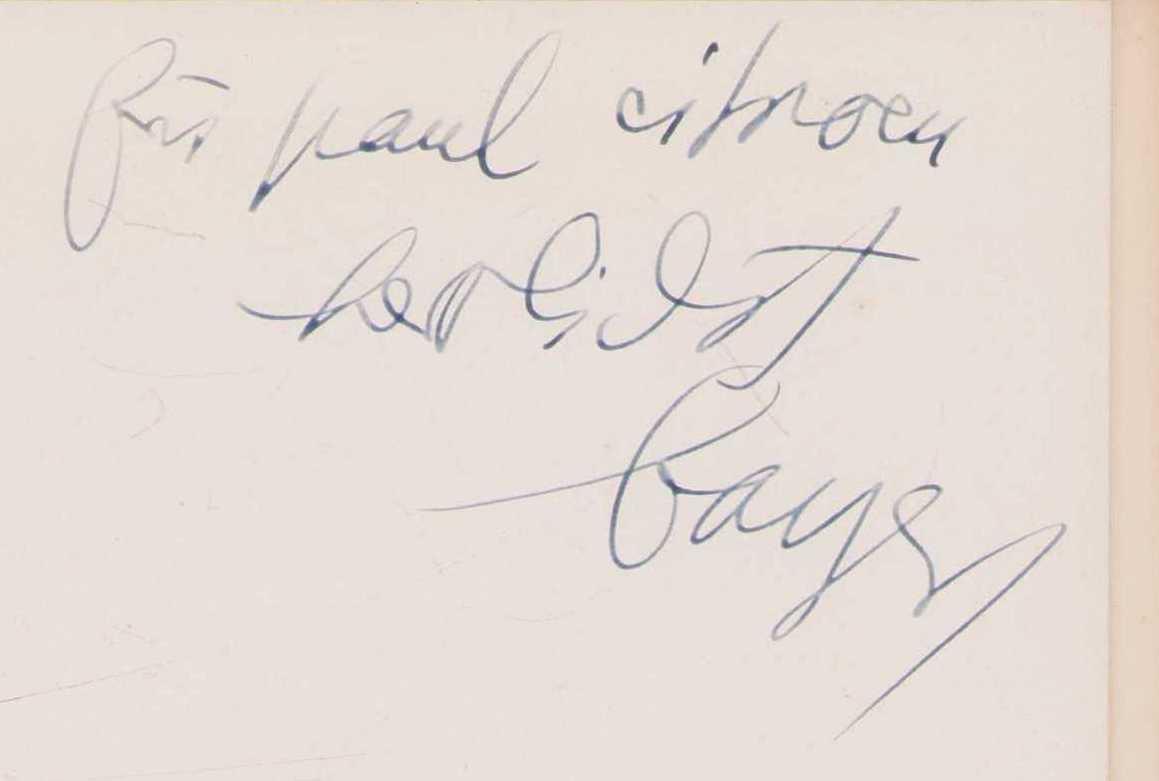 für paul citroen
herzlichst
bayer